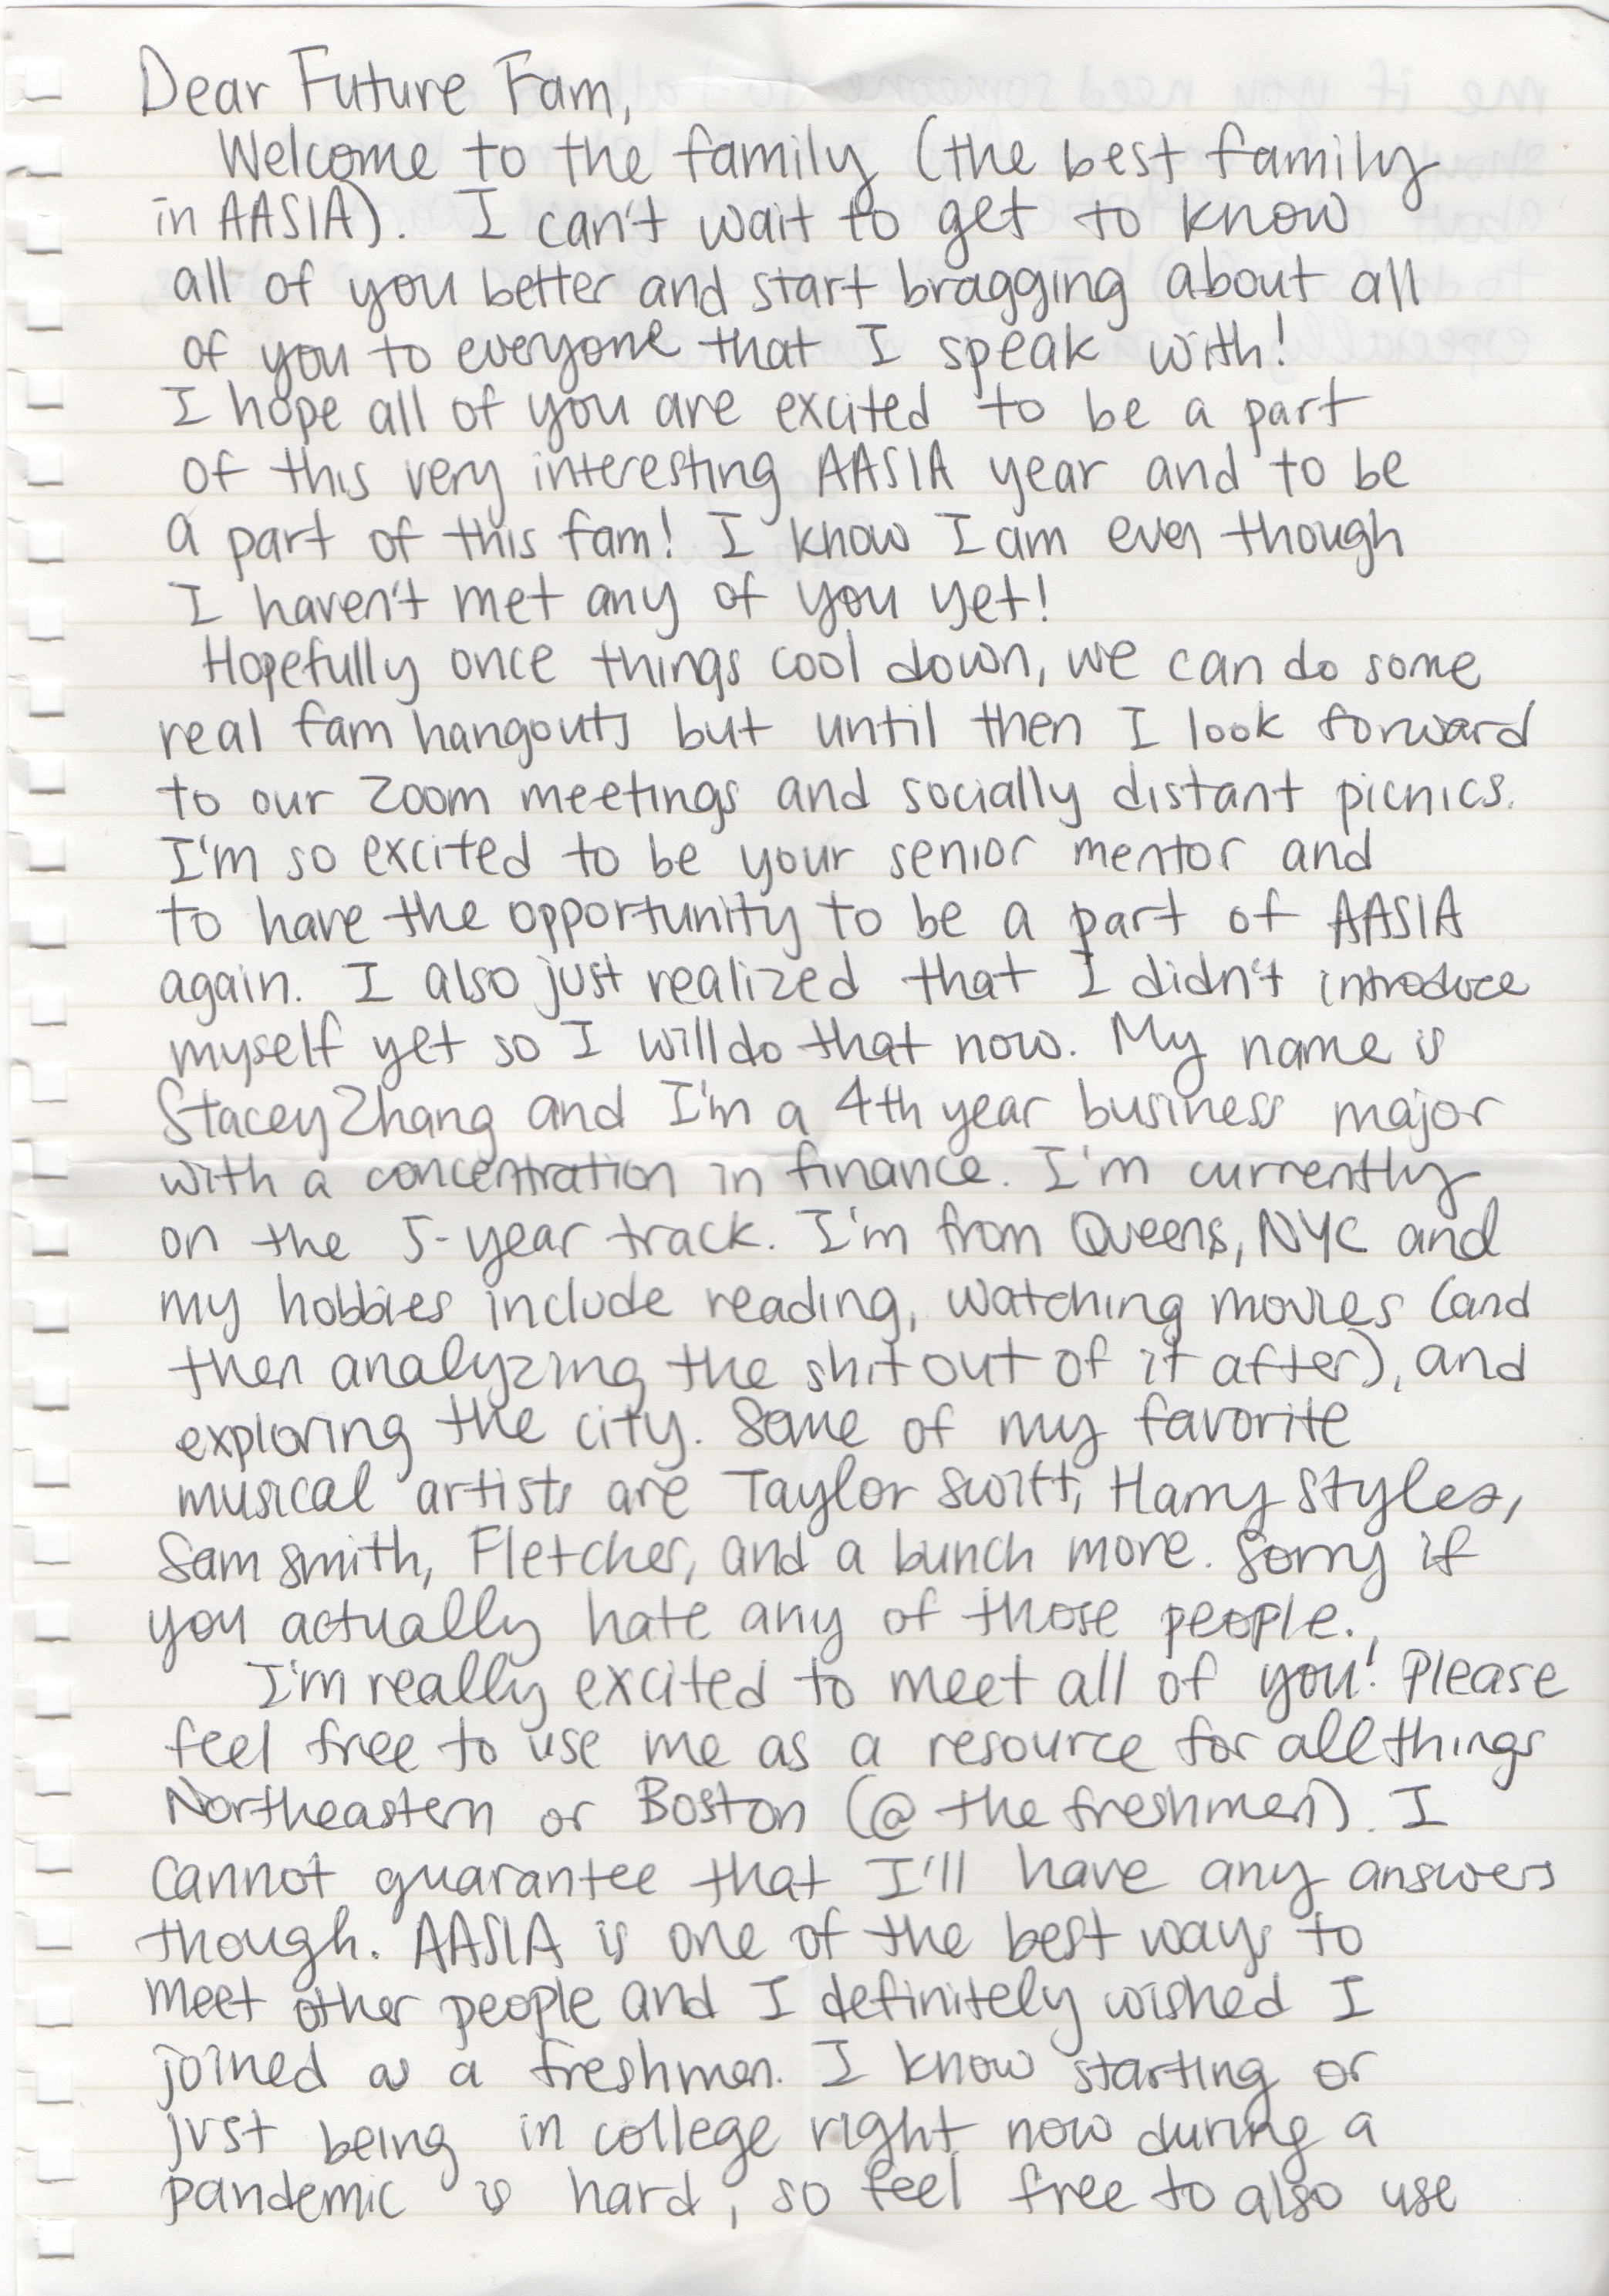 Dear Future Fam,
Welcome to the family (the best family
in AASIA). I can't wait to get to know
all of you better and start bragging about all
of you to everyone that I speak with!
I hope all of you are excited to be a part
of this very interesting AASIA year and to be
a part of this fam! I know I am even though
I haven't met any of you yet!
Hopefully once things cool down, we can do some
real fam hangouts but until then I look forward
to our Zoom meetings and socially distant picnics.
I'm so excited to be your senior mentor and
to have the opportunity to be a part of AASIA
again. I also just realized that I didn't introduce
myself yet so I will do that now. My name is
Stacey Zhang and I'm a 4th year business major
with a concentration in finance. I'm currently
on the 5-year track. I'm from Queens, NYC and
my hobbies include reading, watching movies (and
then analyzing the shit out of it after), and
exploring the city. Some of my favorite
musical artists are Taylor Swift, Harry Styles,
Sam Smith, Fletcher, and a bunch more. Sorry if
you actually hate any of those people.
I'm really excited to meet all of you! Please
feel free to use me as a resource for all things
Northeastern or Boston (@ the freshmen). I
cannot guarantee that I'll have any answers
though. AASIA is one of the best ways to
meet other people and I definitely wished I
joined as a freshmen. I know starting or
just being in college right now during a
pandemic is hard, so feel free to also use